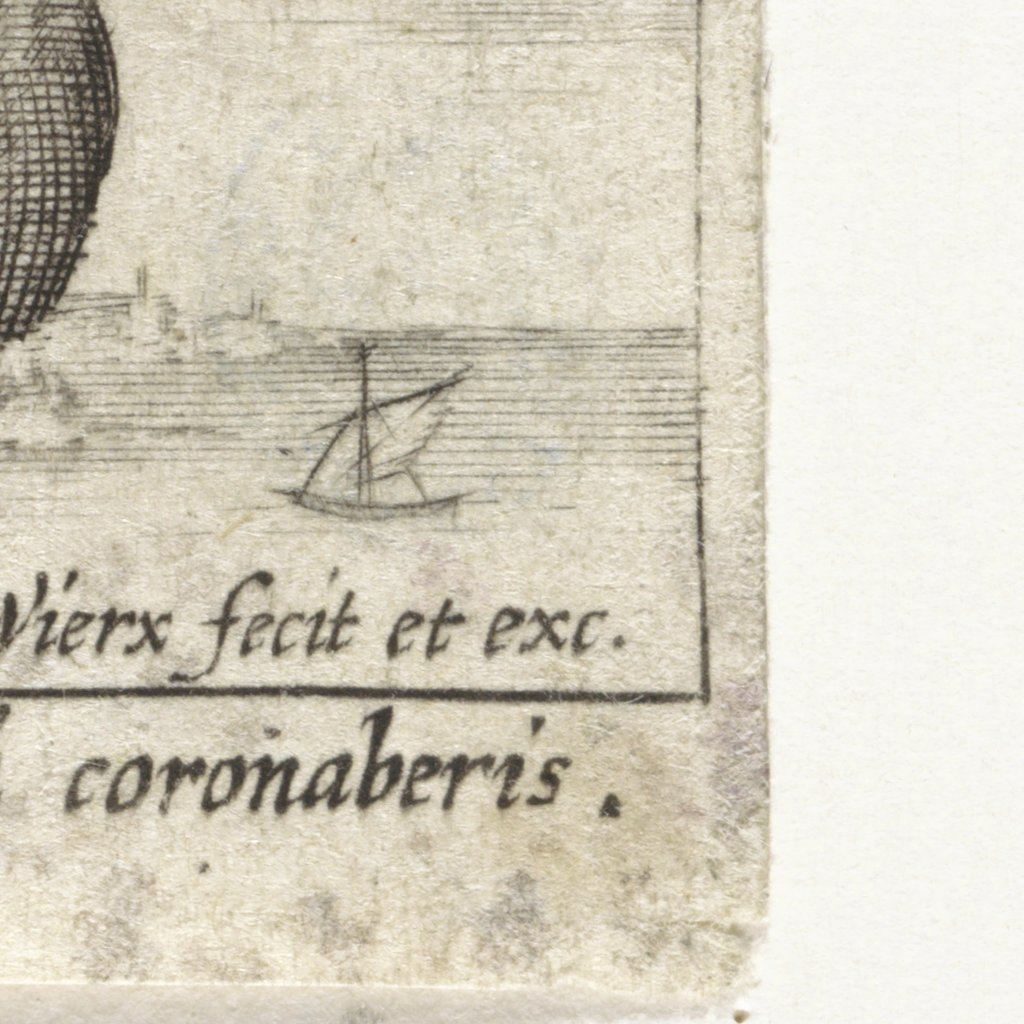 Wierx fecit et exc.
coronaberis.